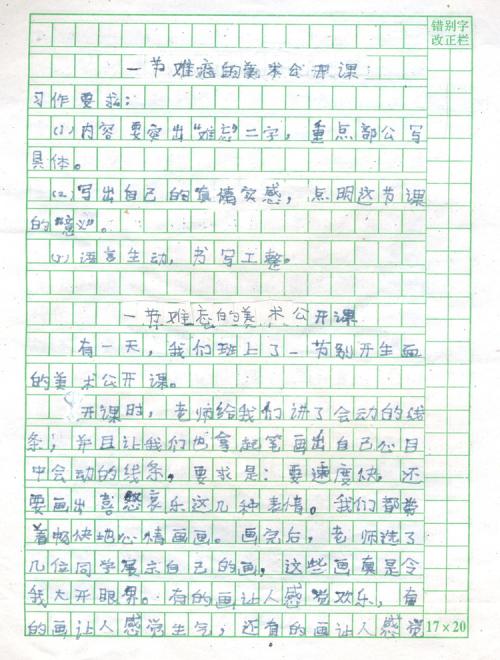 错别字
改正栏
一节难忘的美术公开课
习作要求：
(1)内容要突出“难忘”二字，重点部公写
具体。
(2)写出自己的真情实感，点明这节课
的“意义”。
(3)语言生动，书写工整。
一节难忘的美术公开课
有一天，我们班上了一节别开生面
的美术公开课。
开课时，老师给我们讲了会动的线
条；并且让我们也拿起笔画出自己心目
中会动的线条，要求是：要速度快，还
要画出喜怒哀乐这几种表情。我们都带
着畅快地心情画画。画完后，老师选了
几位同学展示自己的画，这些画真是令
我大开眼界。有的画让人感觉欢乐，有
的画让人感觉生气；还有的画让人感觉
17×20